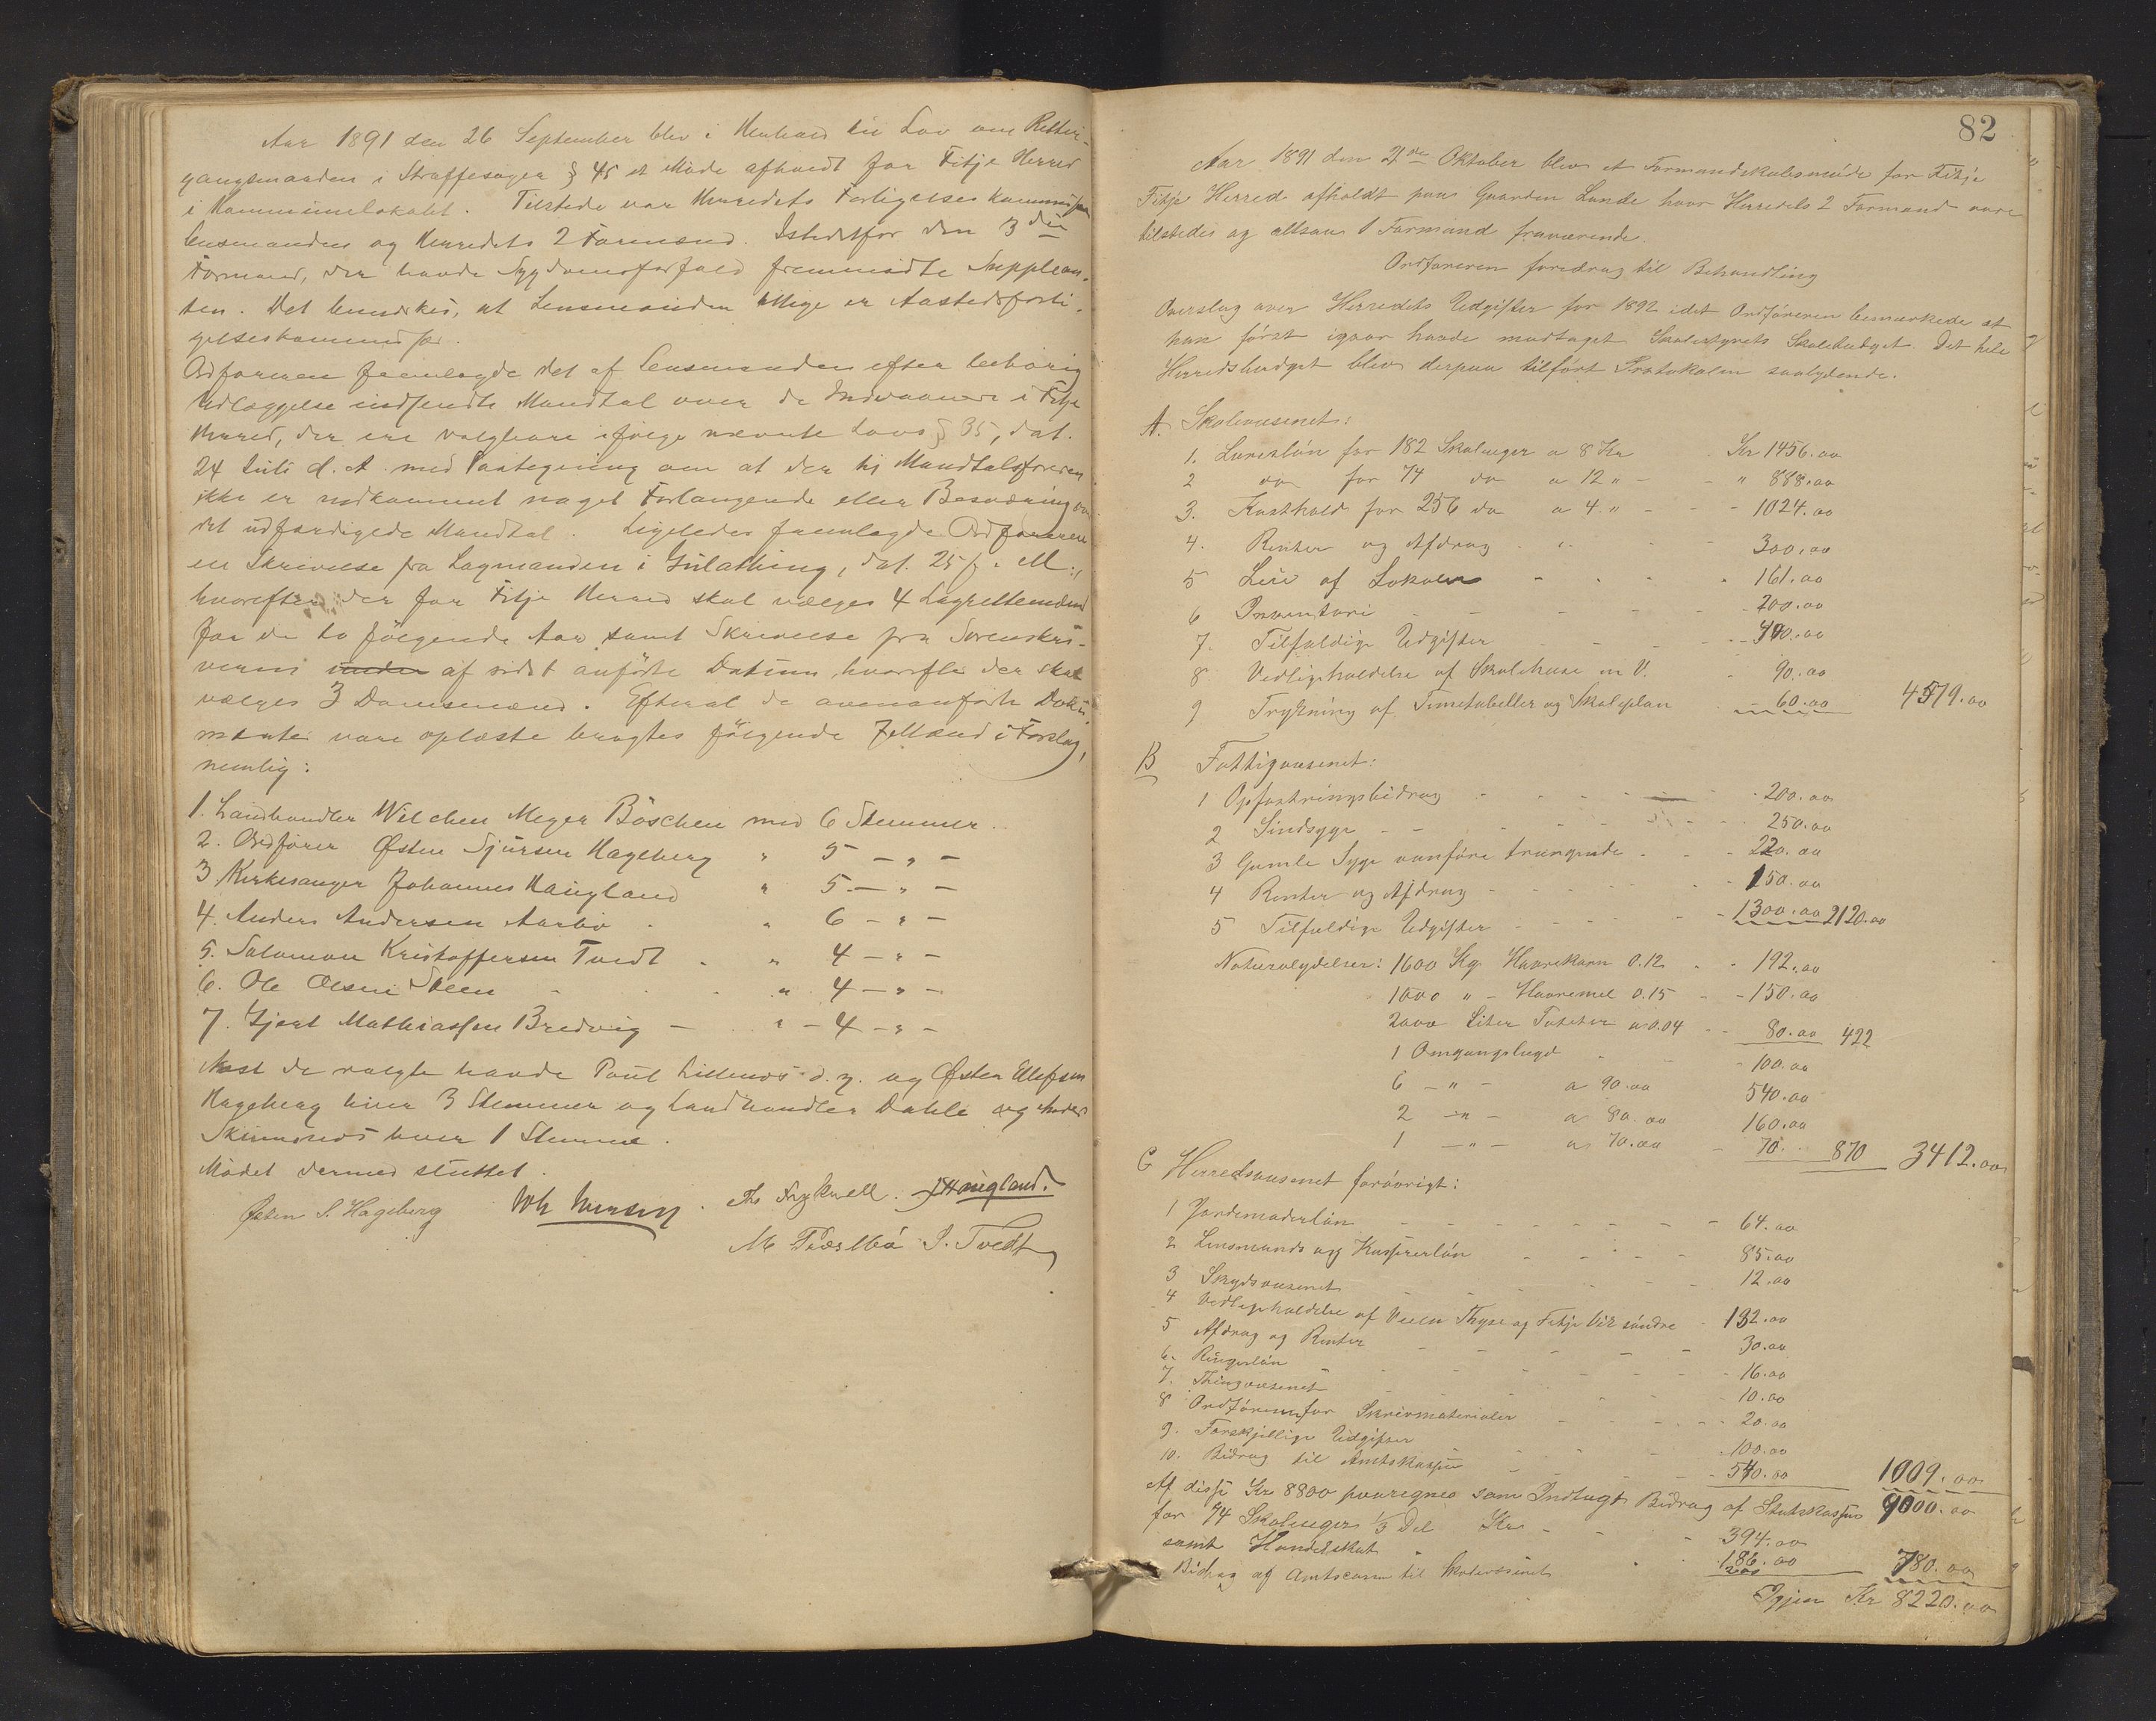 Aar 1891 den 26 September blev i Henhold til Lov om Retter-
gangsmaaden i Straffesager § 45 et Møde afholdt for Fitje Herred
i Kommunelokalet. Tilstede var Herredets Forligelseskommission
lensmanden og Herredets 2 Formænd. Istedetfor den 3die
Formand, der havde Sygdomsforfald fremmødte Supplean-
ten. Det bemærkes, at Lensmanden tillige er Aastedsforli-
gelseskommissær.
Ordføreren fremlagde det af Lensmanden efter behørig
Udlæggelse indsendte Mandtal over de Indvaanere i Fitje
Herred, der ere valgbare ifølge nævnte Lovs § 35, dat.
24 Juli d. A. med Paategning om at der til Mandtalsføreren
ikke er indkommet noget Forlangende eller Besværing over
det udfærdigede Mandtal. Ligeledes fremlagde Ordføreren
en Skrivelse fra Lagmanden i Gulathing, dat. 25 f. M.,
hvorefter der for Fitje Herred skal vælges 4 Lagrettemænd
for de to følgende Aar samt Skrivelse fra Sorenskri-
veren under af sidst anførte Datum, hvorefter der skal
vælges 3 Domsmænd. Efterat de ovenanførte Doku-
menter vare oplæste bragtes følgende 7 Mænd i Forslag,
nemlig:
1. Landhandler Wilchen Meyer Böschen med 6 Stemmer.
2. Ordfører Østen Sjursen Hageberg " 5 – " –
3. Kirkesanger Johannes Haugland " 5 – " –
4. Anders Andersen Aarbø " 6 – " –
5. Salomon Kristoffersen Tvedt " 4 – " –
6. Ole Olsen Steen " 4 – " –
7. Gjert Mathiassen Bredvig – " – 4 – " –
Næst de valgte havde Poul Lillenæs d. y. og Østen Ellefsen
Hageberg hver 3 Stemmer og Landhandler Dahle og Anders
Skimmeros hver 1 Stemme.
Mødet dermed sluttet.
Østen S. Hageberg Joh Iversen. Th Frykvell. J Haugland.
M. S. Tvedt
82
Aar 1891 den 21de Oktober blev et Formandskabsmøde for Fitje
Fitje Herred afholdt paa Gaarden Lunde hvor Herredets 2 Formænd vare
tilstede og altsaa 1 Formand fraværende.
Ordføreren foredrog til Behandling
Overslag over Herredets Udgifter for 1892 idet Ordføreren bemærkede at
han først igaar havde modtaget Skolestyrets Skolebudget. Det hele
Herredsbudget blev derpaa tilført Protokolen saalydende.
A. Skolevæsenet:
1. Lærerløn for 182 Skoleuger a 8 Kr Kr 1456.00
2 do for 74 do a 12 " - - " 888.00
3. Kosthold for 256 do a 4 " - - - 1024.00
4. Renter og Afdrag - - - 300.00
5 Leie af Lokaler - - - 161.00
6 Inventari - - - - 200.00
7. Tilfældige Udgifter - - - 400.00
8. Vedligeholdelse af Skolehuse m V. - 90.00
9 Trykning af Timetabeller og Skoleplan 60.00 4579.00
B Fattigvæsenet:
1 Opfostringsbidrag - - - - 200.00
2 Sindsyge - - - - 250.00
3 Gamle Syge vanføre trængende - - 220.00
4 Renter og Afdrag - - - - 150.00
5 Tilfældige Udgifter - - - - 1300.00 2120.00
Naturalydelser: 1600 Kg Havrekorn 0.12 - - 192.00
1000 " - Havremel 0.15 - - 150.00
2000 Liter Poteter a 0.04 - - 80.00 422
1 Omgangslægd - - 100.00
6 – " – a 90.00 540.00
2 – " – a 80.00 160.00
1 – " – a 70.00 - 70. - 870 3412.00
C Herredsvæsenet forøvrigt:
1 Jordemoderløn - - - - 64.00
2 Lensmands og Kassererløn - - - 85.00
3 Skydsvæsenet - - - 12.00
4 Vedligeholdelse af Veien Thyse og Fitje Vik søndre - 132.00
5 Afdrag og Renter - - - - 30.00
6. Ringerløn - - - - 16.00
7. Thingvæsenet - - - 10.00
8 Ordføreren for Skrivmaterialer - - - 20.00
9. Forskjellige Udgifter - - 100.00
10. Bidrag til Amtskassen - - - 540.00 1009.00
Af disse Kr 8800 paaregnes som Indtægt Bidrag af Statskassen 9000.00
for 74 Skoleuger 1/3 Del Kr - - 394.00
samt Handelskat - - 186.00
Bidrag af Amtscomm til Skolevæsenet 200 780.00
Igjen Kr 8220.00